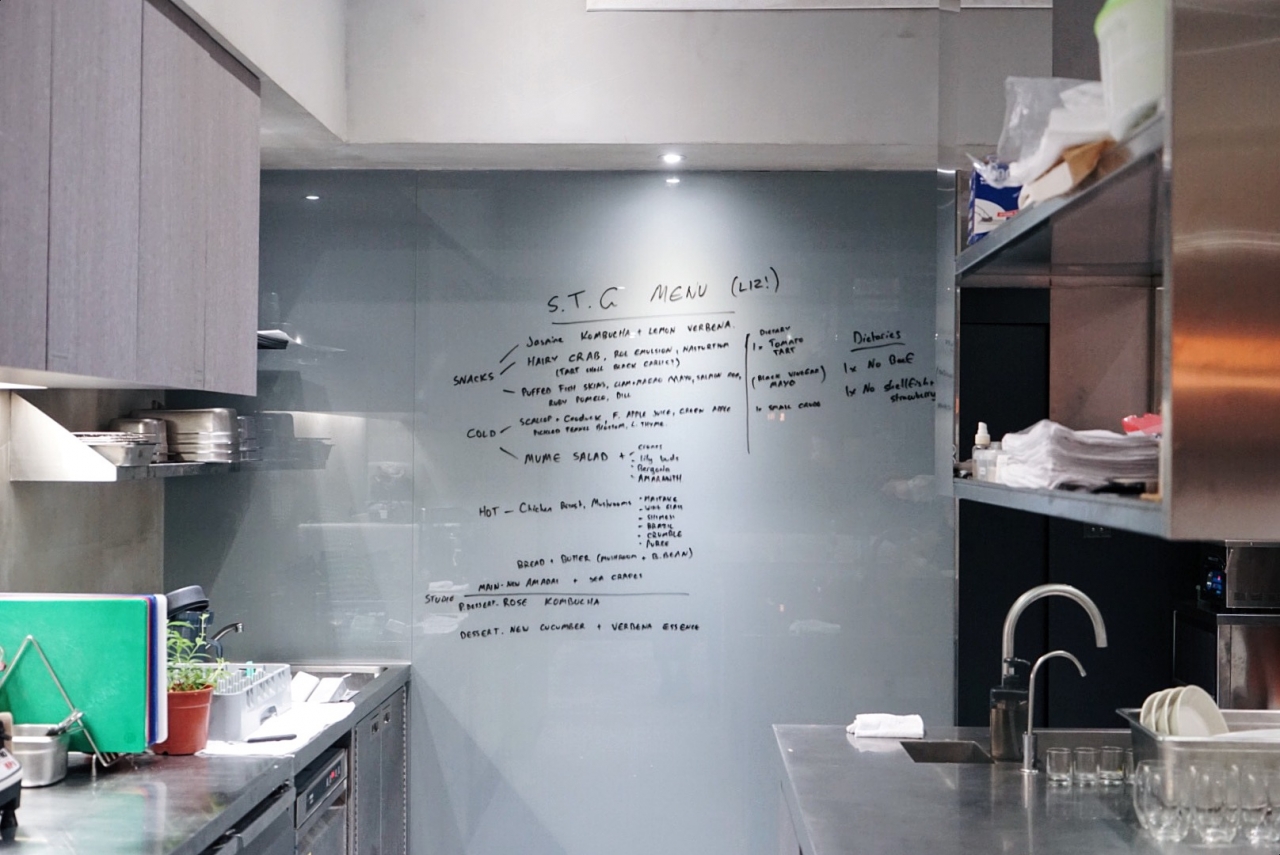 S.T.G MENU (LIZ!)
Jasmine KOMBUCHA + LEMON VERBENA.
SNACKS
HAIRY CRAB, ROE EMULSION, NASTURTIUM
(TART SHELL BLACK GARLIC?)
PUFFED FISH SKINS, CLAM + MAO MAYO, SALMON ROE,
RUBY POMELO, DILL
COLD
SCALLOP + F. APPLE JUICE, GREEN APPLE
PICKLED BLOSSOM, L. THYME.
MUME SALAD +
Lily buds
Bergonia
AMARANTH
HOT - Chicken Breast, Mushrooms
MAITAKE
SHIMEJI
CRUMBLE
PUREE
BREAD + BUTTER (MUSHROOM + B.BEAN)
MAIN - NEW AMADAI + SEA GRAPES
STUDIO
P.DESSERT. ROSE KOMBUCHA
DESSERT. NEW CUCUMBER + VERBENA ESSENCE
DIETARY
1x TOMATO
TART
(BLACK VINEGAR)
MAYO
1x SMALL
Dietaries
1x No Beef
1x No shellfish +
strawberry